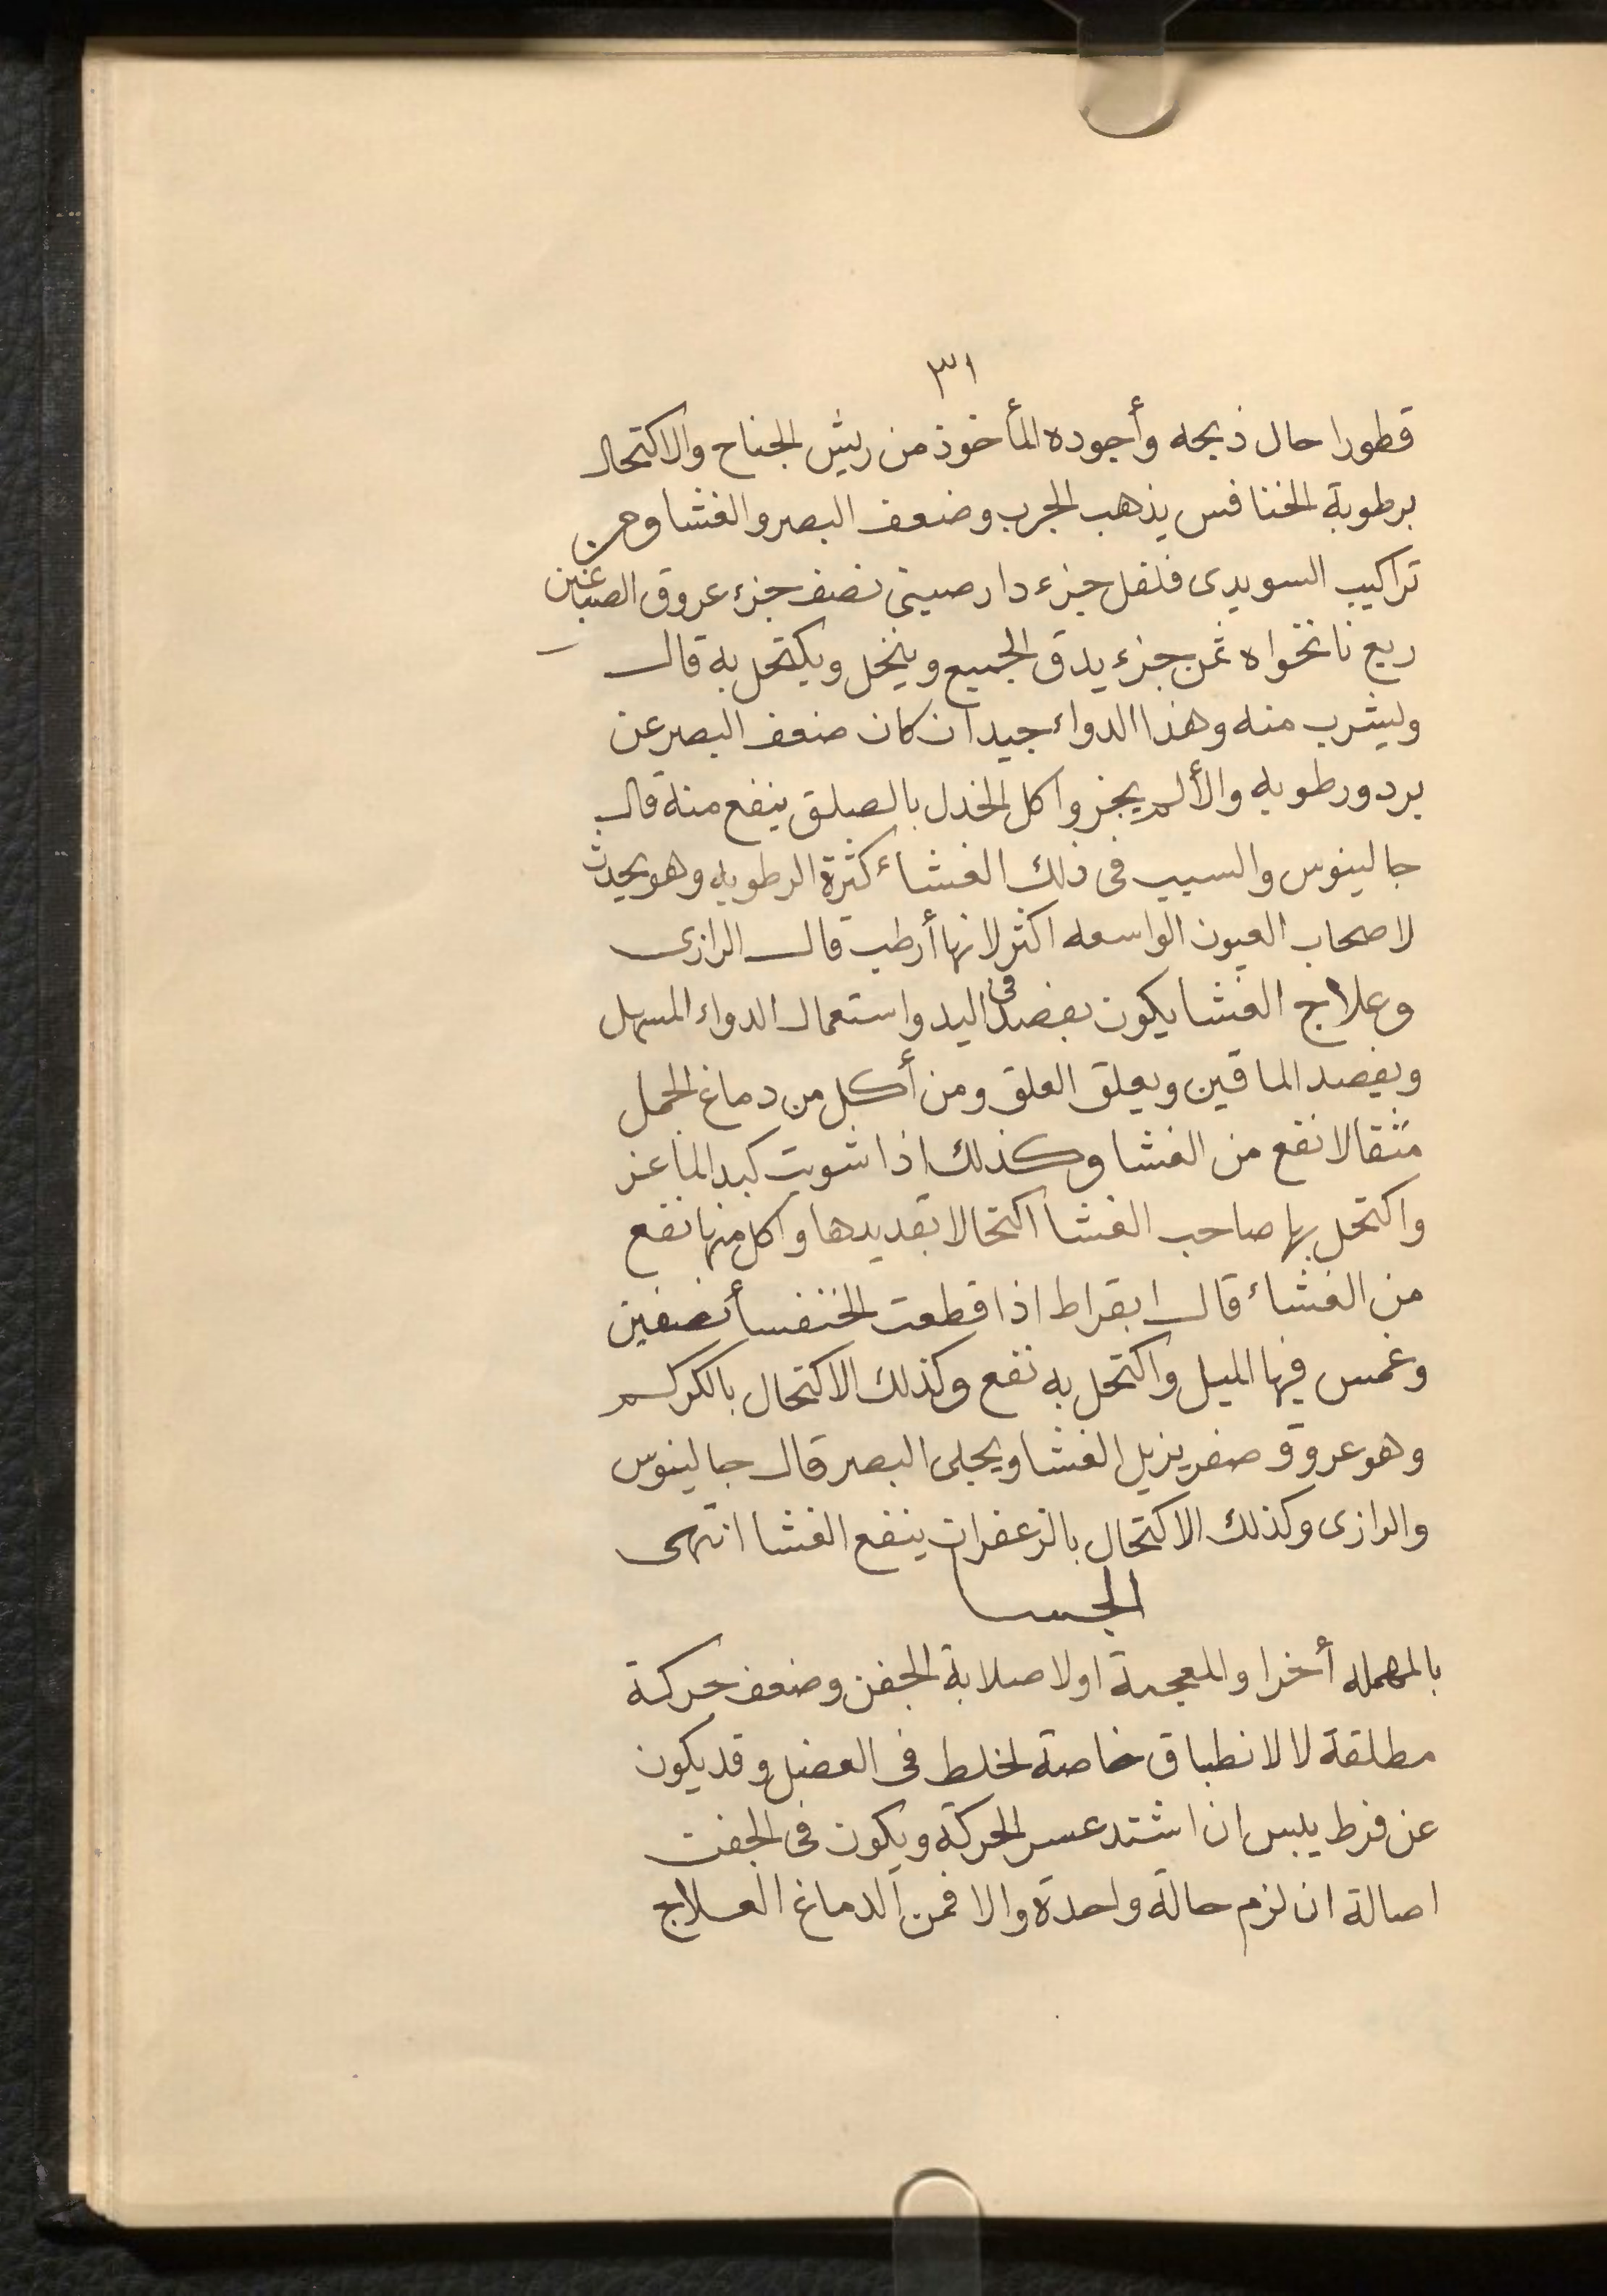 ٣١
قطورا حال ذبحه وأجوده المأخوذ من ريش الجناح والاكتحال
برطوبة الخنافس يذهب الجرب وضعف البصر والغشا ومن
تراكيب السويدى فلفل جزء دار صينى نصف جزء عروق الصباغين
ربع نانخواه ثمن جزء يدق الجميع وينخل ويكتحل به قال
وليشرب منه وهذا الدواء جيد ان كان ضعف البصر عن
برد ورطوبه والألم يجز واكل الخدل بالصلق ينفع منه قال
جالينوس والسبب فى ذلك الغشاء كثرة الرطوبه وهو يحدث
لاصحاب العيون الواسعه اكثر لانها أرطب قال الرازى
وعلاج الغشا يكون بفصد فى اليد واستعمال الدواء المسهل
وبفصد الماقين وبعلق العلق ومن أكل من دماغ الجمل
مثقالا نفع من الغشا وكذلك اذا شويت كبد الماعز
واكتحل بها صاحب الغشا اكتحالا بقديدها واكل منها نفع
من الغشاء قال ابقراط اذا قطعت الخنفسأ نصفين
وغمس فيها الميل واكتحل به نفع وكذلك الاكتحال بالكركم
وهو عروق صفر يزيل الغشا ويجلى البصر قال جالينوس
والرازى وكذلك الاكتحال بالزعفران ينفع الغشا انتهى
الجسا
بالمهمله أخرا والمعجمة اولا صلابة الجفن وضعف حركة
مطلقة لا لانطباق خاصة لخلط فى العضل وقد يكون
عن فرط يبس ان اشتد عسر الحركة ويكون فى الجفن
اصالة ان لزم حالة واحدة والا فمن الدماغ العلاج